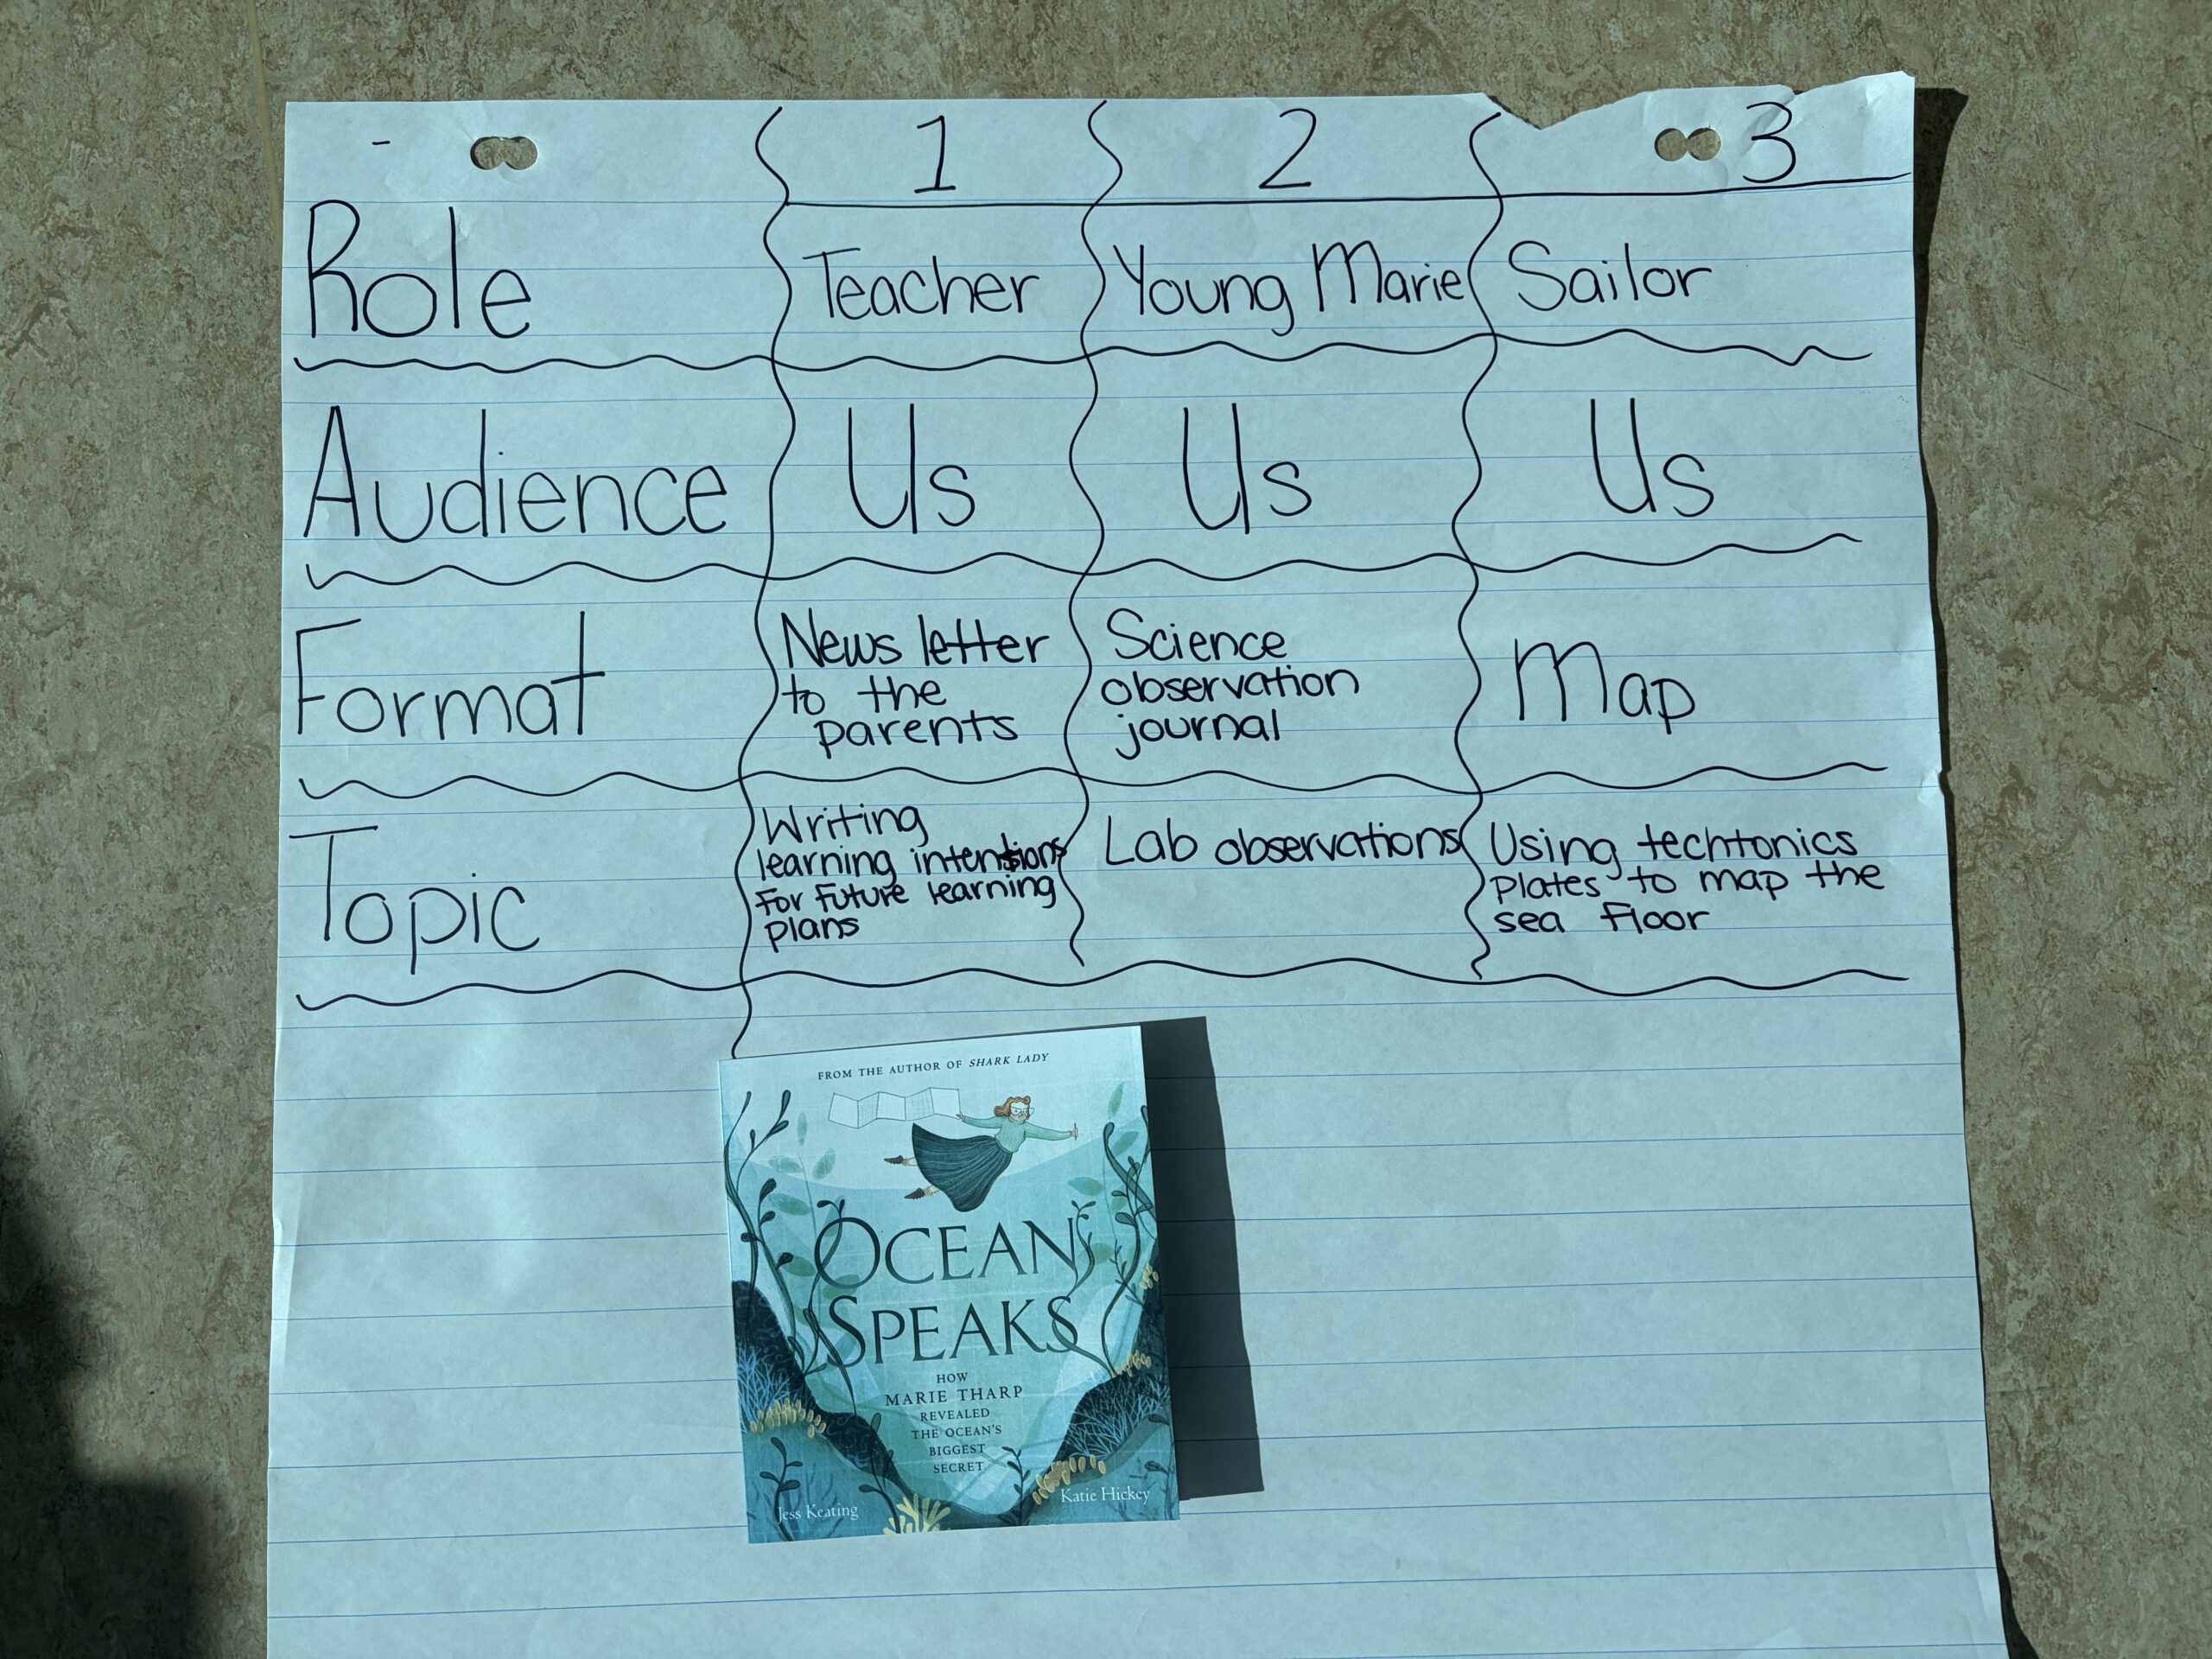 - 1 2 3
Role Teacher Young Marie Sailor
Audience Us Us Us
Format
News letter
to the
parents
Science
observation
journal
Map
Topic
Writing
learning intentions
for future learning
plans
Lab observations
Using techtonics
plates to map the
sea floor
FROM THE AUTHOR OF SHARK LADY
OCEAN
SPEAKS
HOW
MARIE THARP
REVEALED
THE OCEAN'S
BIGGEST
SECRET
Jess Keating
Katie Hickey